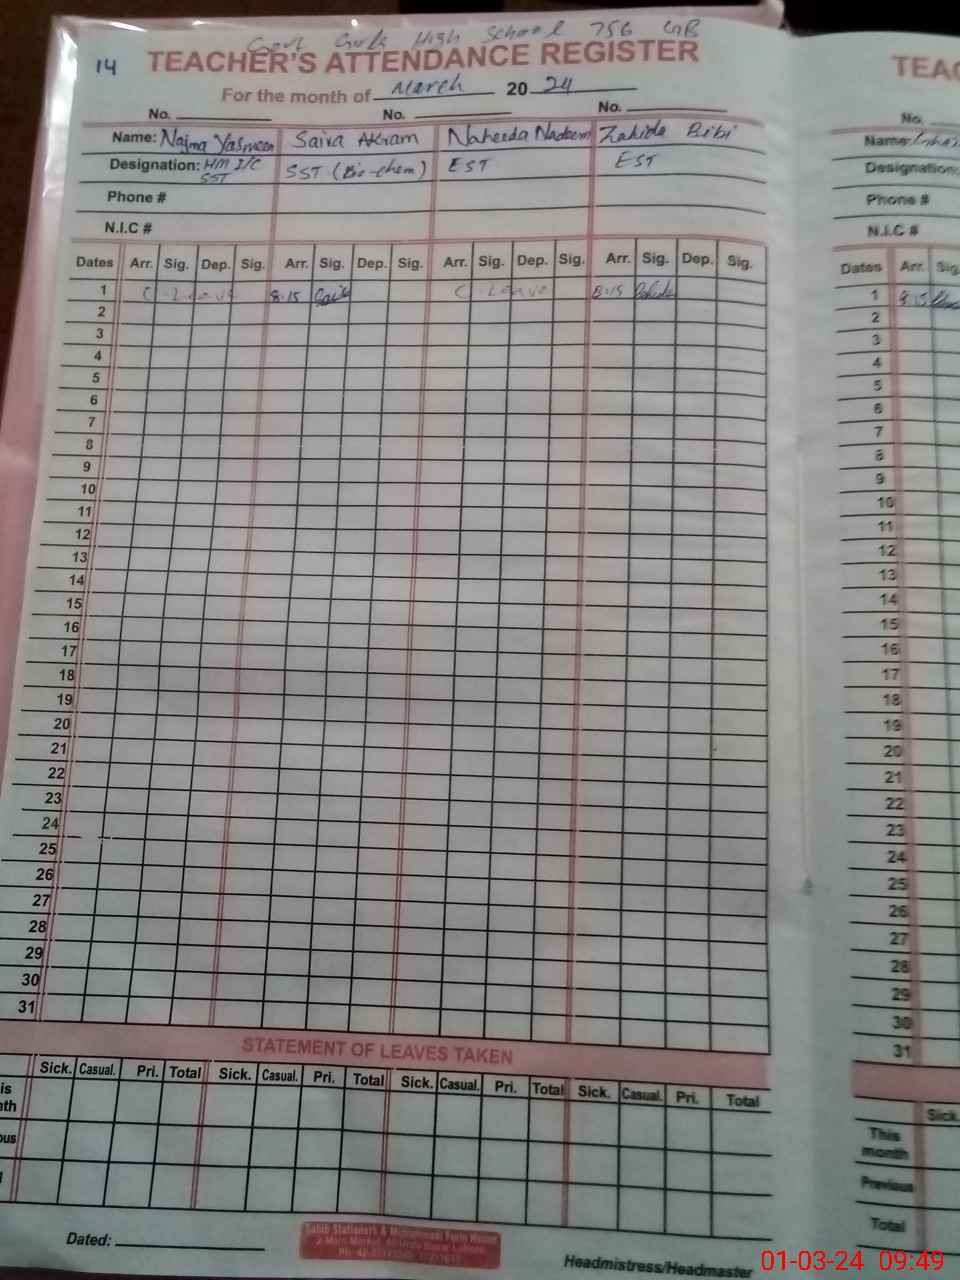 Govt Girls High School 756 GB
14 TEACHER'S ATTENDANCE REGISTER
For the month of March 20 24
No. No. No.
Name: Najma Yasmeen Saira Akram Naheeda Nadeem Zahida Bibi
Designation: HM I/C SST SST (Bio-chem) EST EST
Phone #
N.I.C #
Dates Arr. Sig. Dep. Sig. Arr. Sig. Dep. Sig. Arr. Sig. Dep. Sig. Arr. Sig. Dep. Sig.
1 C. Leave 8:15 C. Leave 8:15
2
3
4
5
6
7
8
9
10
11
12
13
14
15
16
17
18
19
20
21
22
23
24
25
26
27
28
29
30
31
STATEMENT OF LEAVES TAKEN
Sick. Casual. Pri. Total Sick. Casual. Pri. Total Sick. Casual. Pri. Total Sick. Casual. Pri. Total
is
nth
ous
Dated:
Headmistress/Headmaster
TEAC
No.
Name:
Designation:
Phone #
N.I.C #
Dates Arr. Sig
1 8:15
2
3
4
5
6
7
8
9
10
11
12
13
14
15
16
17
18
19
20
21
22
23
24
25
26
27
28
29
30
31
Sick.
This
month
Previous
Total
01-03-24 09:49